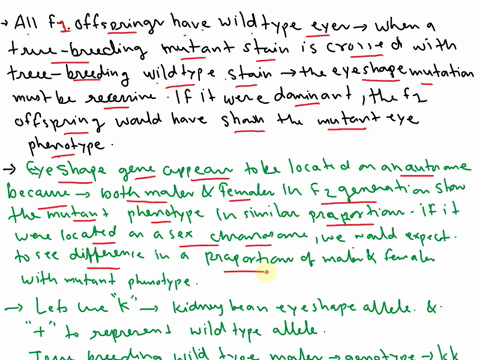 → All f1 offsprings have wild type eyes → when a
true-breeding mutant stain is crossed with
tree-breeding wildtype stain → the eyeshape mutation
must be recessive. If it were dominant, the f2
offspring would have shown the mutant eye
phenotype.
→ Eyeshape gene appears to be located on an autosome
because → both males & females in f2 generation show
the mutant phenotype in similar proportion. if it
were located on a sex chromosome, we would expect
to see difference in a proportion of males & females
with mutant phenotype.
→ Lets use "k" → kidney bean eyeshape allele &
"+" to represent wild type allele.
True breeding wild type males → genotype → kk